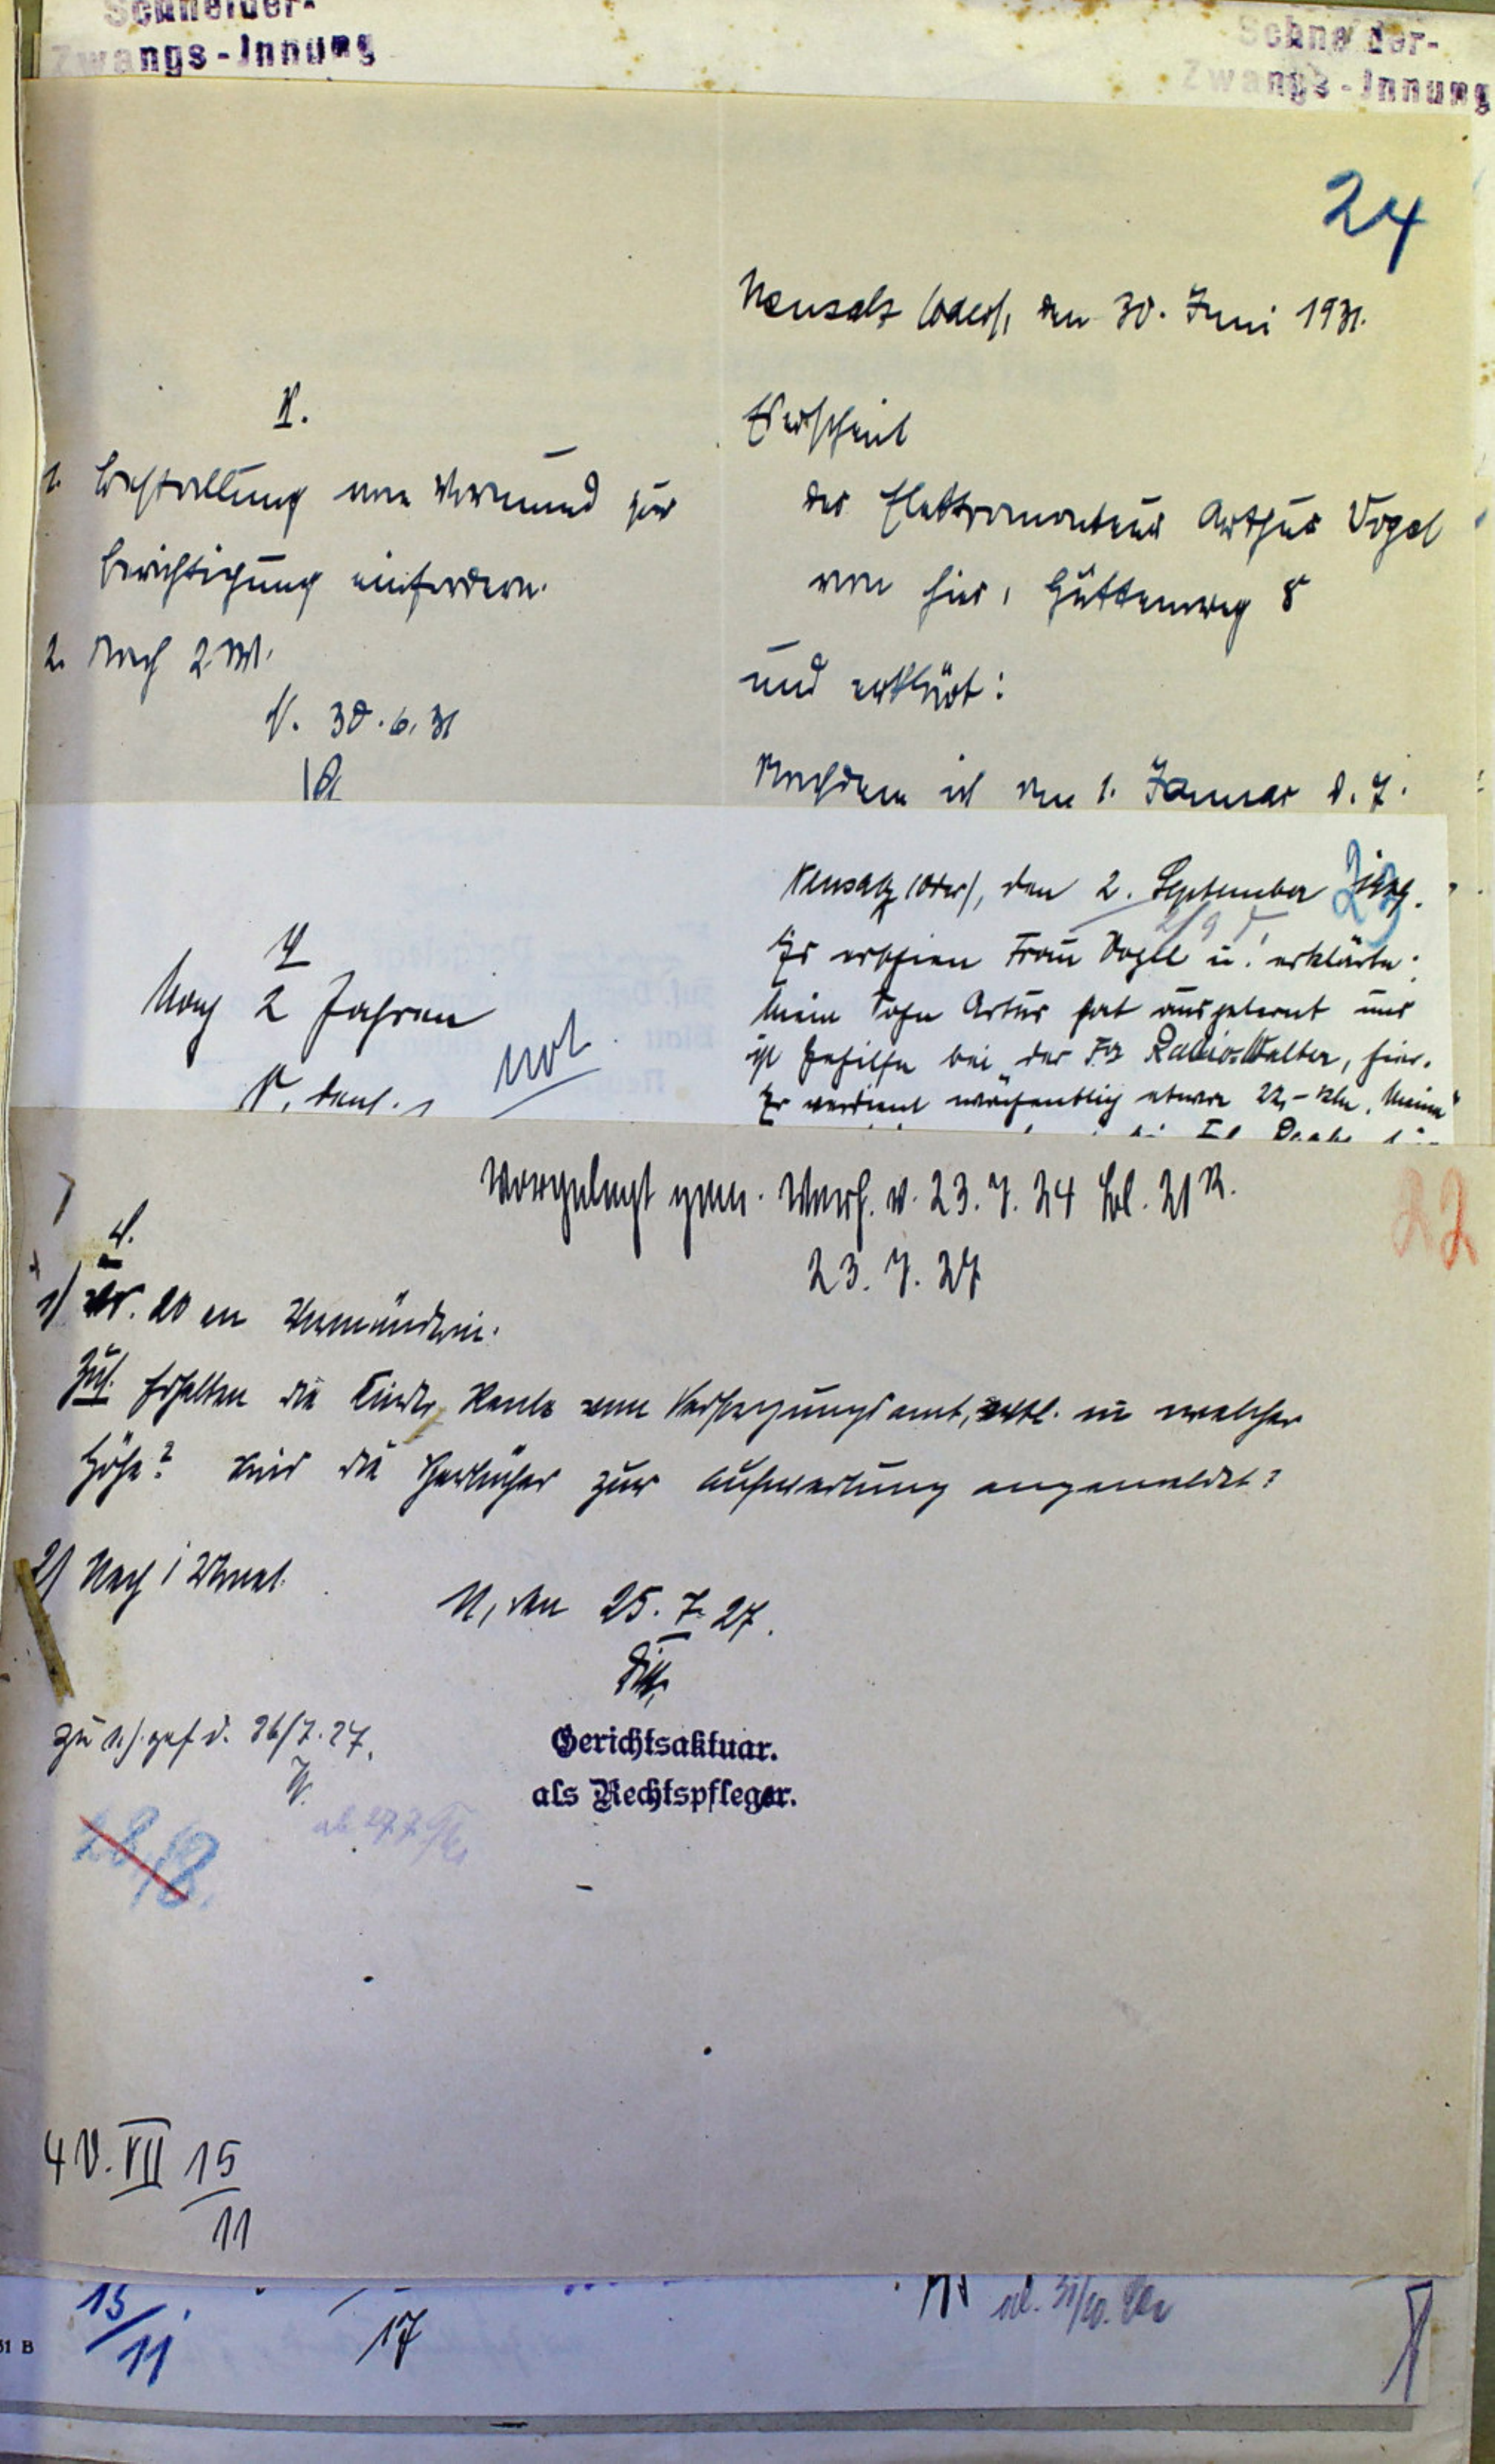 Schneider-
Zwangs-Innung
Schneider-
Zwangs-Innung
24
Neusalz (Oder), den 30. Juni 1931.
V.
1. Bestallung vom Vormund zur
Berichtigung einfordern.
2. Nach 2 M.
N. 30.6.31
Erscheint
der Elektromonteur Arthur Vogel
von hier, Hüttenweg 8
und erklärt:
Nachdem ich am 1. Januar d. J.
Neusalz (Oder), den 2. September
23
Es erschien Frau Vogel u. erklärte:
Mein Sohn Artur hat ausgelernt und
ist Gehilfe bei der Fa Radio-Walter, hier.
Er verdient wöchentlich etwa 22,- RM. Meine
V
Nach 2 Jahren
not.
N, den
Vorgelegt gem. Verf. v. 23.7.24 Bl. 21 R.
23.7.27
22
V.
1) 20 an Vormünderin.
Zus. Erhalten die Kinder Rente vom Versorgungsamt, evtl. in welcher
Höhe? Sind die Sparbücher zur Aufwertung angemeldet?
2) Nach 1 Monat.
N, den 25.7.27.
Gerichtsaktuar.
als Rechtspfleger.
zu 1) gef. d. 26/7.27.
ab 27.7
28/8.
4 V. VII 15
11
15/11
17
ab. 31/10.
51 B